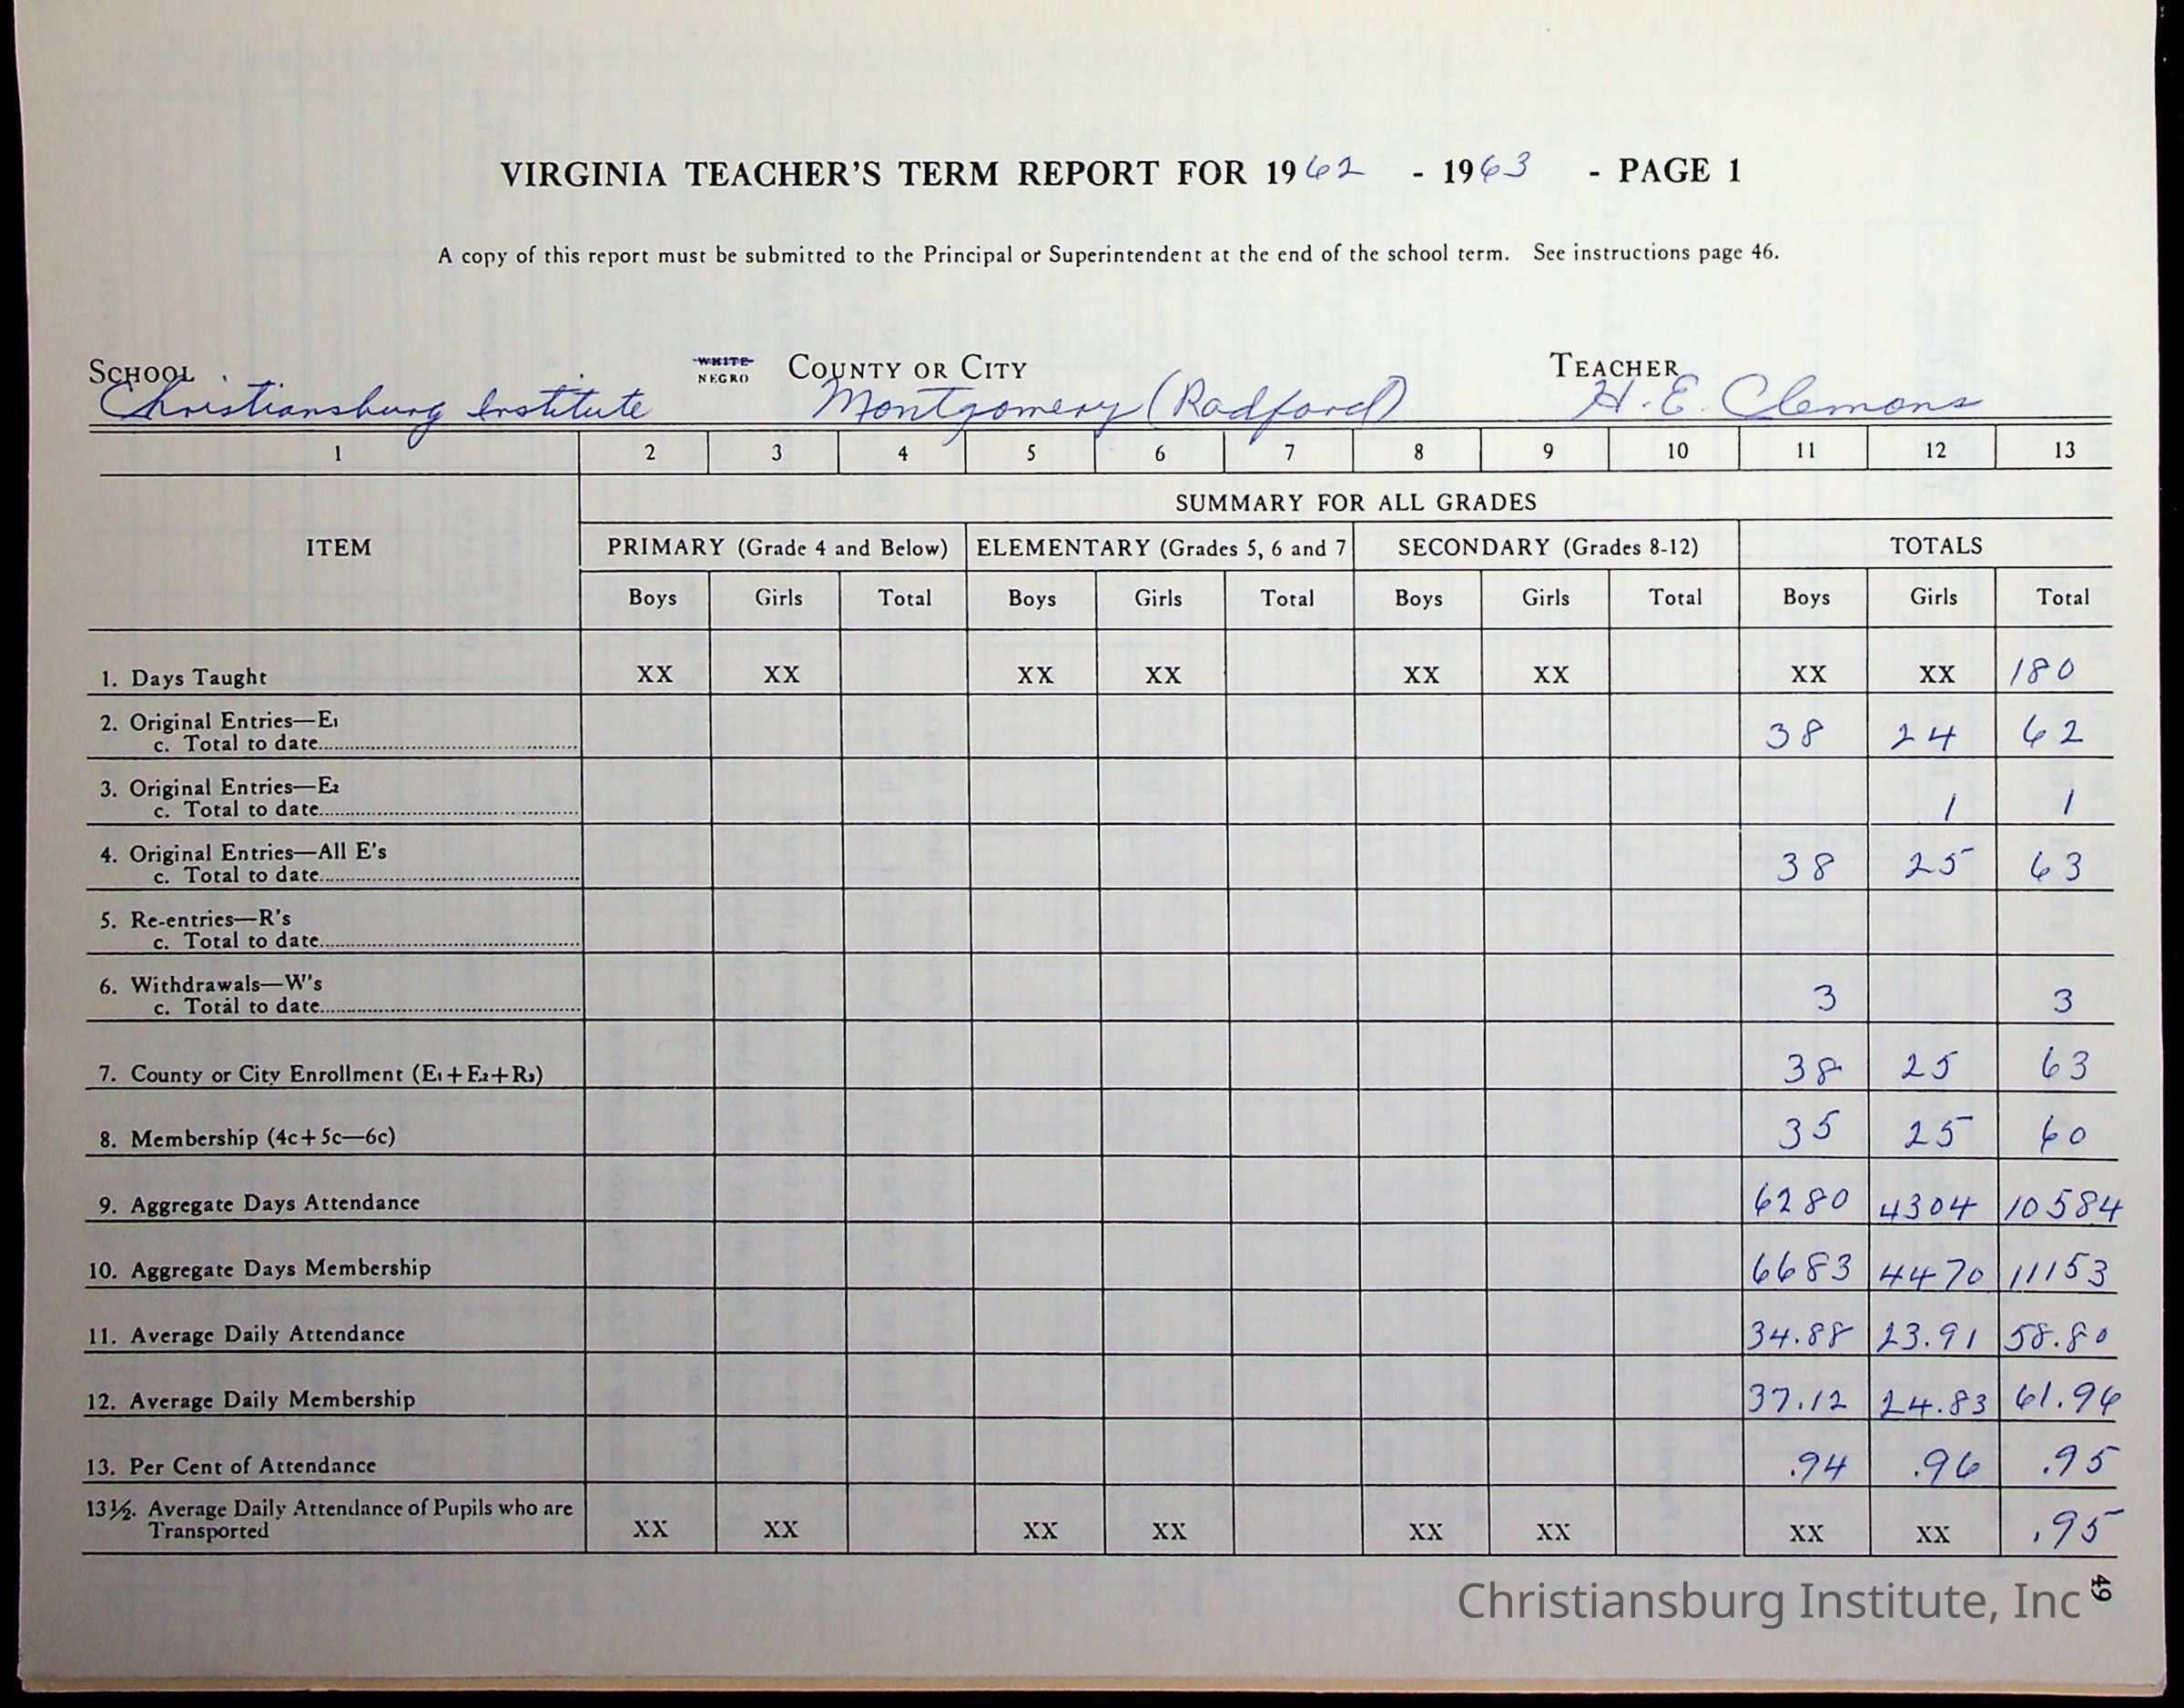 VIRGINIA TEACHER'S TERM REPORT FOR 1962 - 1963 - PAGE 1
A copy of this report must be submitted to the Principal or Superintendent at the end of the school term. See instructions page 46.
SCHOOL WHITE NEGRO COUNTY OR CITY TEACHER
Christiansburg Institute Montgomery (Radford) H. E. Clemons
1 2 3 4 5 6 7 8 9 10 11 12 13
SUMMARY FOR ALL GRADES
ITEM PRIMARY (Grade 4 and Below) ELEMENTARY (Grades 5, 6 and 7 SECONDARY (Grades 8-12) TOTALS
Boys Girls Total Boys Girls Total Boys Girls Total Boys Girls Total
1. Days Taught XX XX XX XX XX XX XX XX 180
2. Original Entries—E1
c. Total to date 38 24 62
3. Original Entries—E2
c. Total to date 1 1
4. Original Entries—All E's
c. Total to date 38 25 63
5. Re-entries—R's
c. Total to date
6. Withdrawals—W's
c. Total to date 3 3
7. County or City Enrollment (E1+E2+R3) 38 25 63
8. Membership (4c+5c—6c) 35 25 60
9. Aggregate Days Attendance 6280 4304 10584
10. Aggregate Days Membership 6683 4470 11153
11. Average Daily Attendance 34.88 23.91 58.80
12. Average Daily Membership 37.12 24.83 61.96
13. Per Cent of Attendance .94 .96 .95
13½. Average Daily Attendance of Pupils who are
Transported XX XX XX XX XX XX XX XX .95
49
Christiansburg Institute, Inc